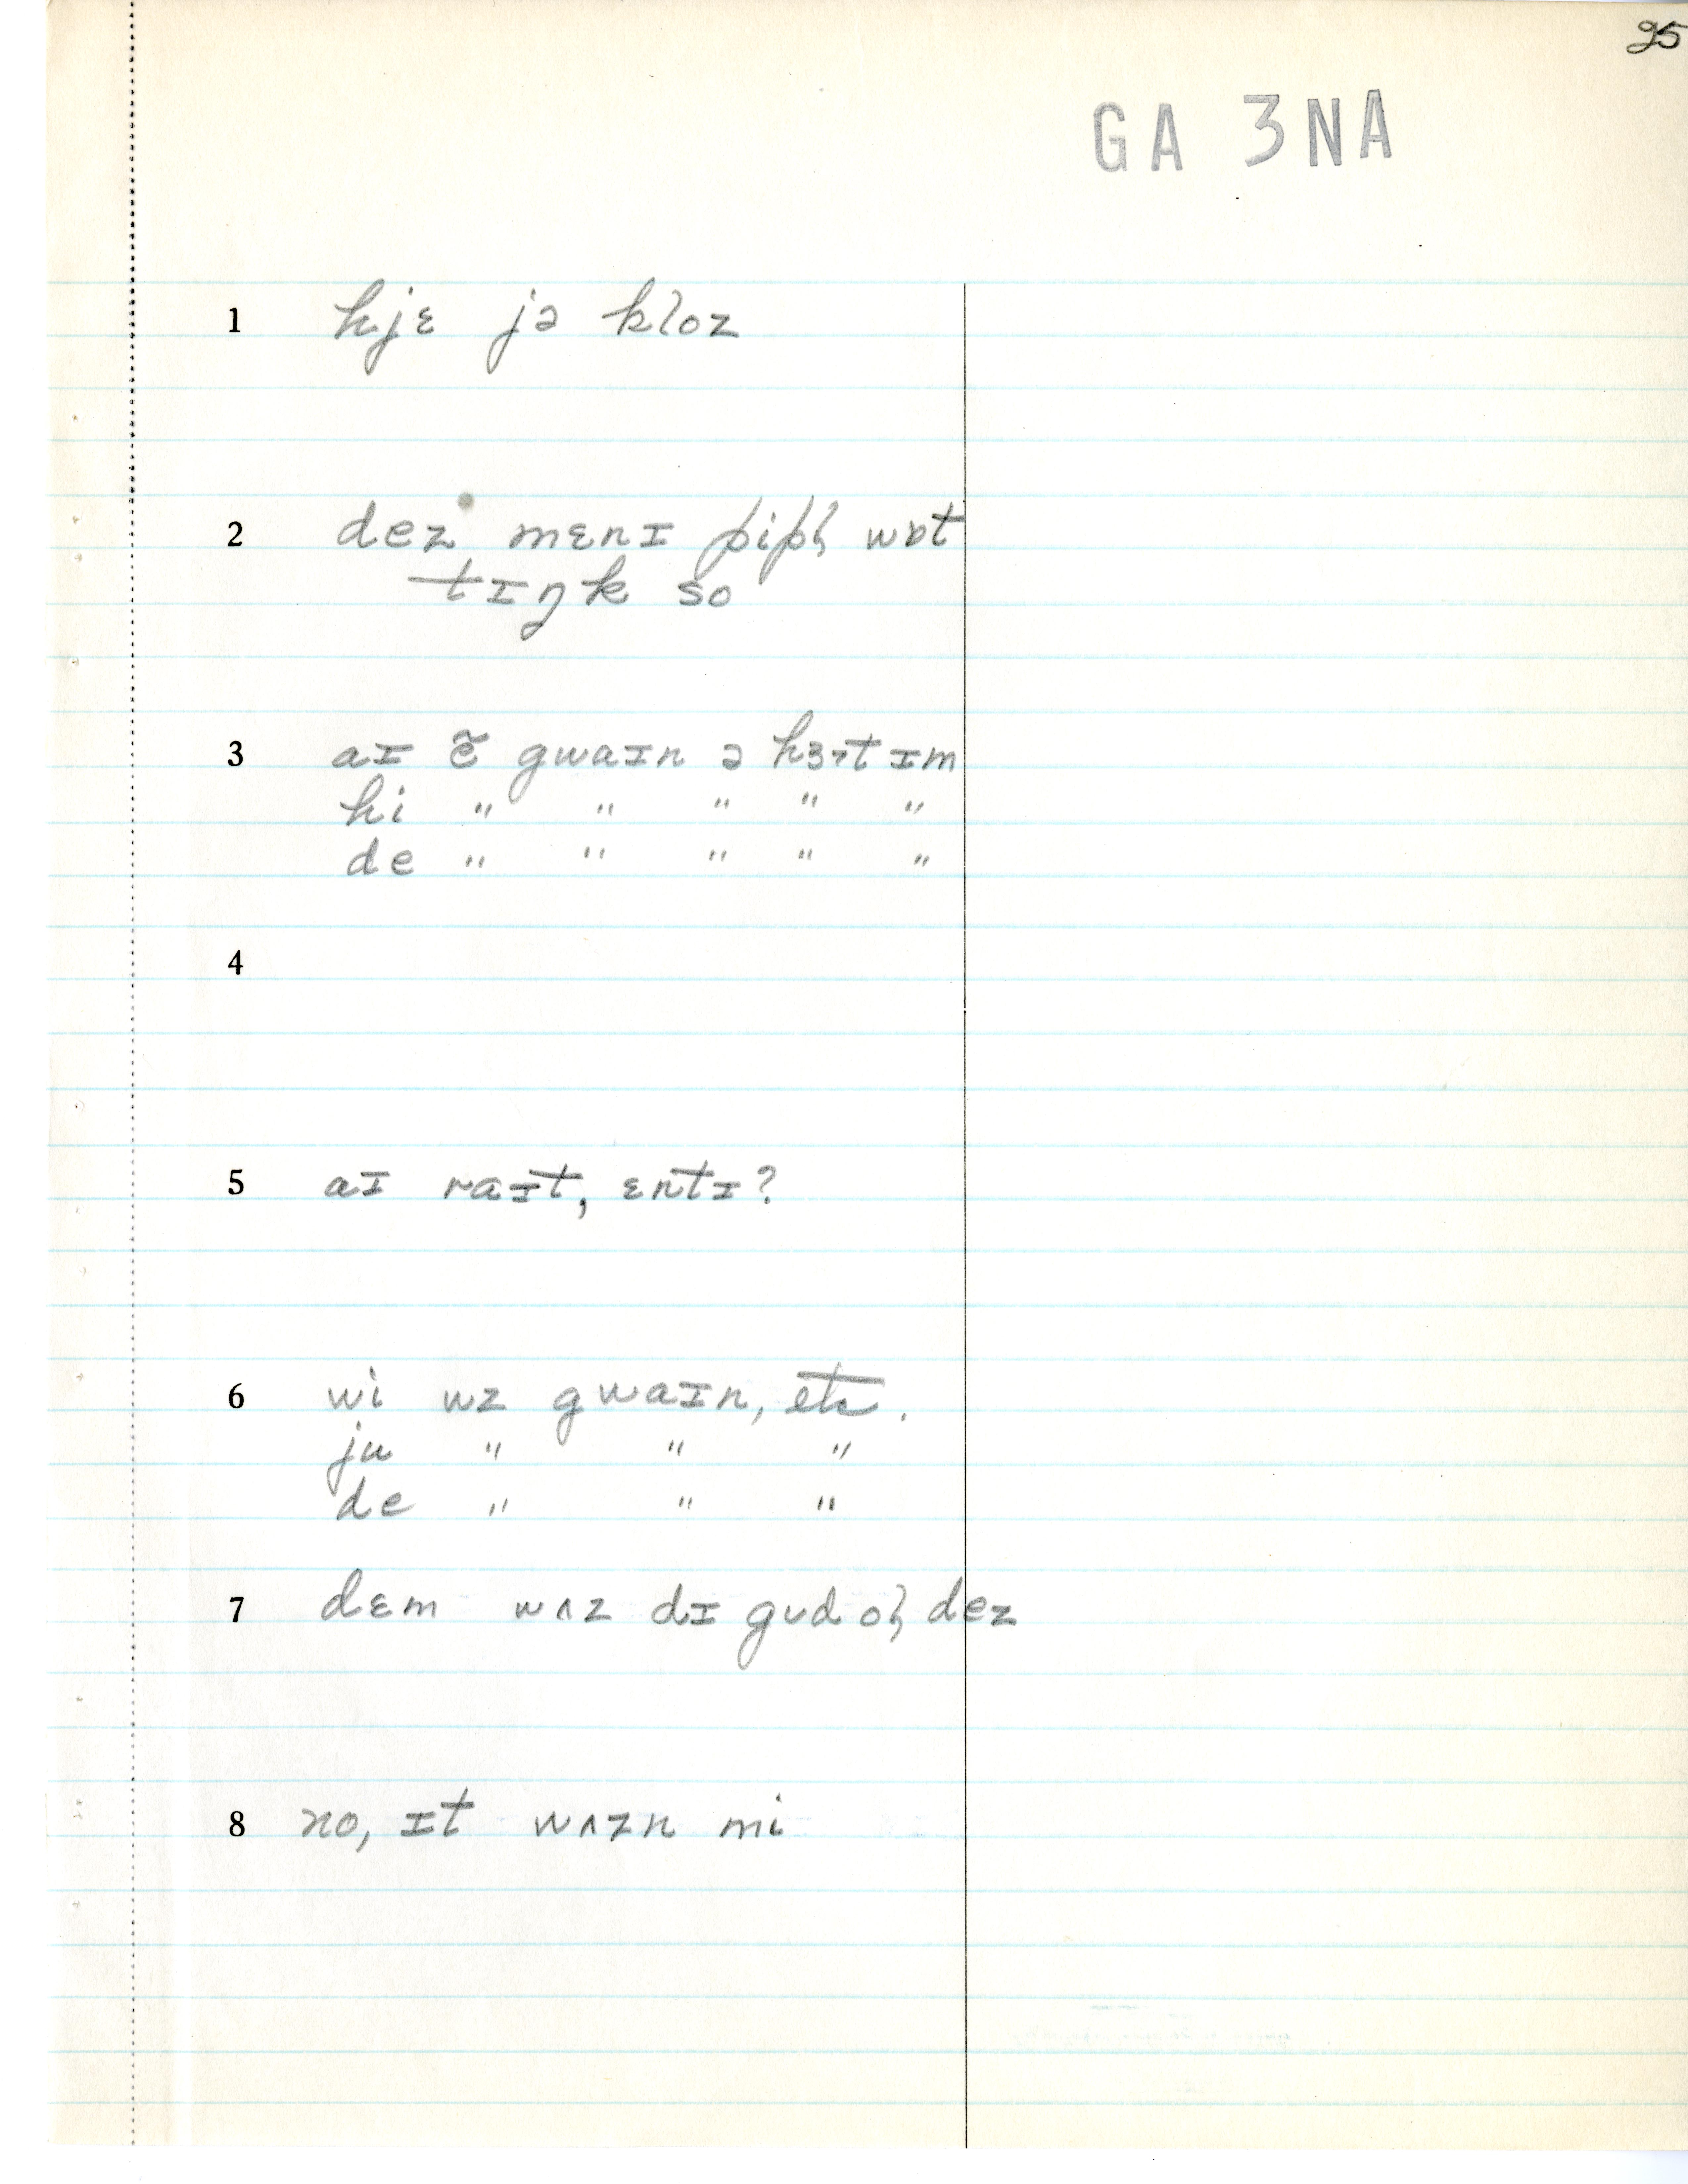 25
GA 3NA
1 hjɛ jə kloz
2 dez mɛnɪ pipl̩ wɒt
tɪŋk so
3 aɪ ẽ gwaɪn ə hɜrt ɪm
hi " " " " "
de " " " " "
4
5 aɪ raɪt, ɛntɪ?
6 wi wz gwaɪn, etc.
ju " " "
de " " "
7 dɛm wʌz dɪ gʊd ol̩ dez
8 no, ɪt wʌzn mi